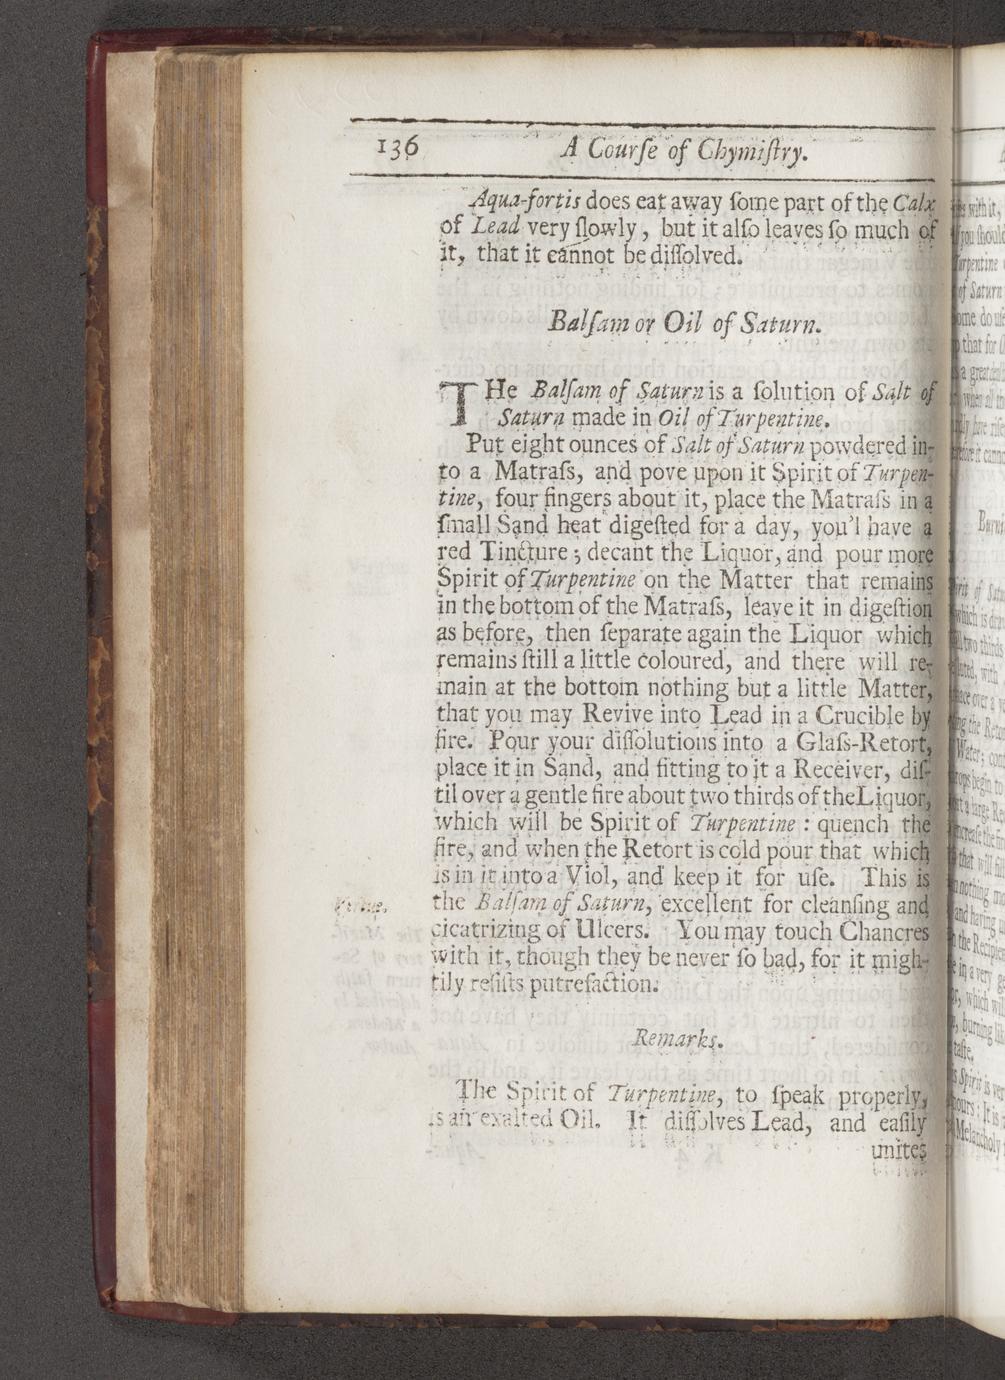 136 A Courſe of Chymiſtry.
Aqua-fortis does eat away ſome part of the Calx
of Lead very ſlowly, but it alſo leaves ſo much of
it, that it cannot be diſſolved.
Balſam or Oil of Saturn.
THe Balſam of Saturn is a ſolution of Salt of
Saturn made in Oil of Turpentine.
Put eight ounces of Salt of Saturn powdered in-
to a Matraſs, and pove upon it Spirit of Turpen-
tine, four fingers about it, place the Matraſs in a
ſmall Sand heat digeſted for a day, you'l have a
red Tincture; decant the Liquor, and pour more
Spirit of Turpentine on the Matter that remains
in the bottom of the Matraſs, leave it in digeſtion
as before, then ſeparate again the Liquor which
remains ſtill a little coloured, and there will re-
main at the bottom nothing but a little Matter,
that you may Revive into Lead in a Crucible by
fire. Pour your diſſolutions into a Glaſs-Retort,
place it in Sand, and fitting to it a Receiver, diſ-
til over a gentle fire about two thirds of the Liquor,
which will be Spirit of Turpentine : quench the
fire, and when the Retort is cold pour that which
is in it into a Viol, and keep it for uſe. This is
the Balſam of Saturn, excellent for cleanſing and
cicatrizing of Ulcers. You may touch Chancres
with it, though they be never ſo bad, for it migh-
tily reſiſts putrefaction.
Remarks.
The Spirit of Turpentine, to ſpeak properly,
is an exalted Oil. It diſſolves Lead, and eaſily
unites